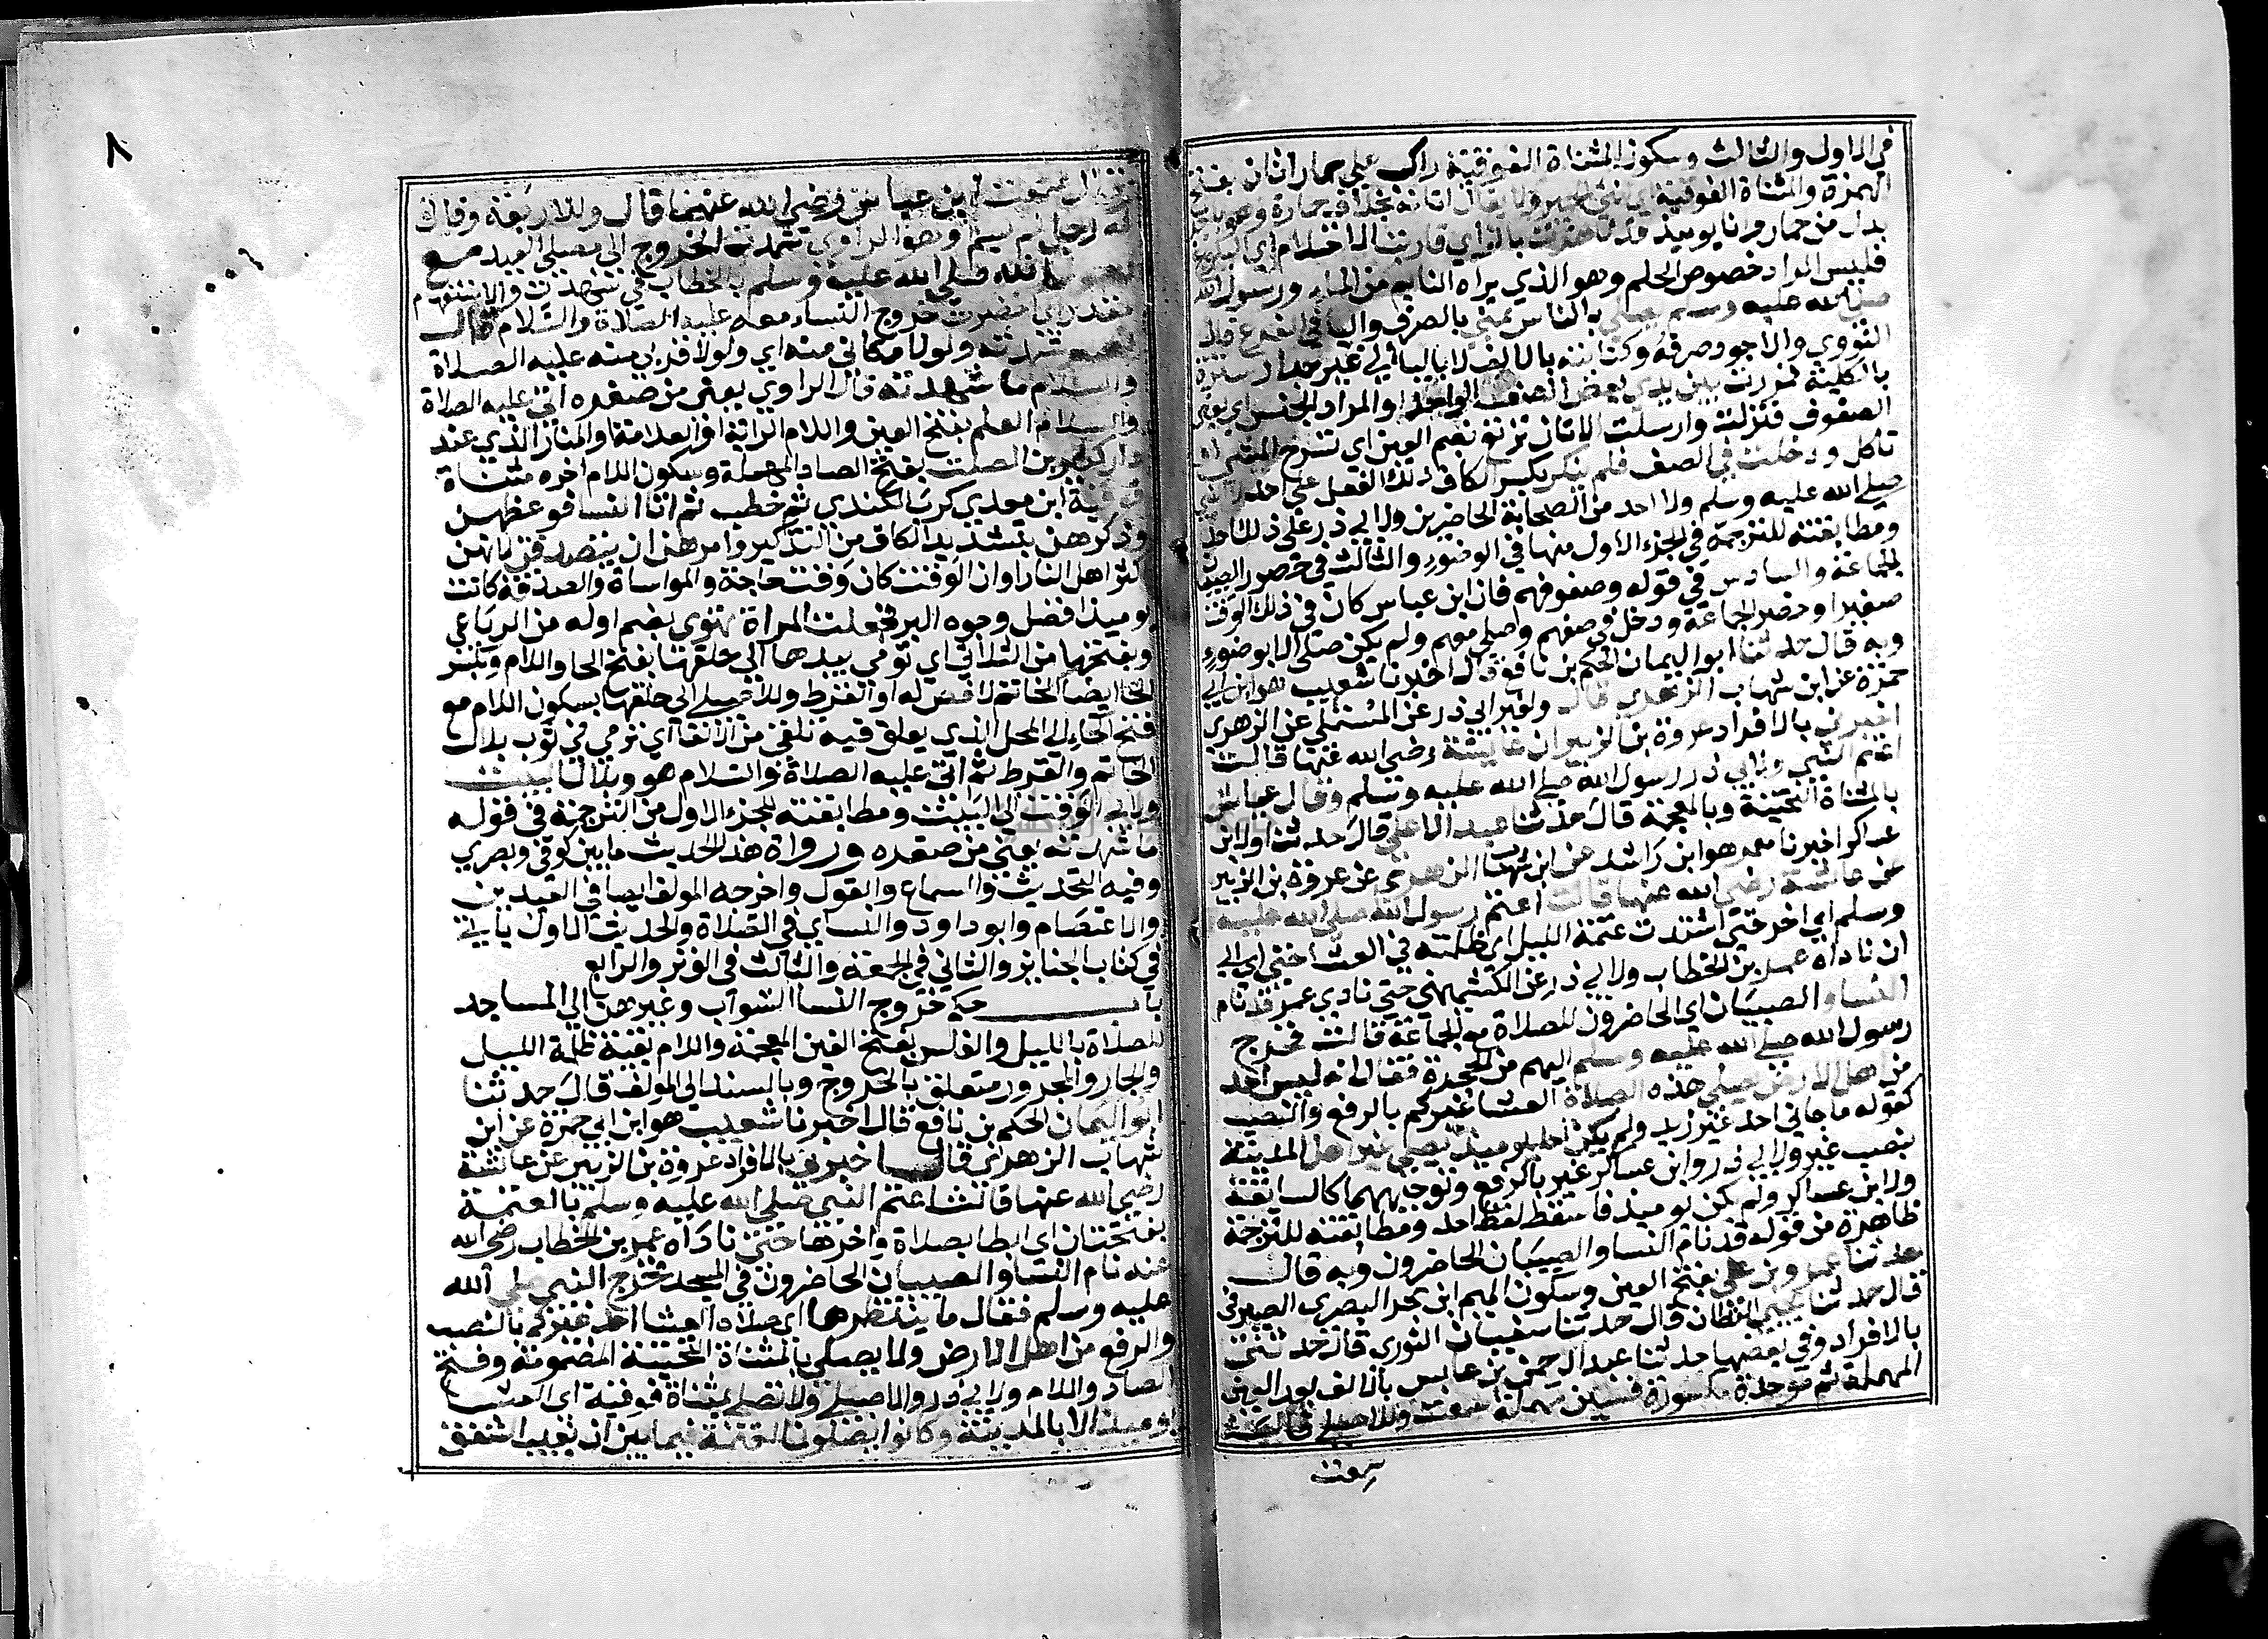 في الاول والثالث وسكون المثناة الفوقية راكب علي حمار اتان بفتح
الهمزة والمثناة الفوقية اي انثي الحمير ولا يقال اتانة بخلاف حمارة وهو بدل
بدل من حمار وانا يومئذ قد ناهزت بالزاي قاربت الاحتلام اي البلوغ
فليس المراد خصوص الحلم وهو الذي يراه النايم من الماء ورسول الله
صلي الله عليه وسلم يصلي بالناس بمني بالصرف والياء في الفرع قال
النووي والاجود صرفه وكتابته بالالف لا بالياء الي غير جدار سترة
بالكلية فمررت بين يدي بعض الصف الواحد او المراد الجنس اي بعض
الصفوف فنزلت وارسلت الاتان ترتع بضم العين اي تسرع المشي او
تاكل ودخلت في الصف فلم ينكر بكسر الكاف ذلك الفعل علي احد
صلي الله عليه وسلم ولا احد من الصحابة الحاضرين ولابي ذر علي ذلك احد
ومطابقته للترجمة في الجزء الاول منها في الوضوء والثالث في حضور الصبيان
الجماعة والسادس في قوله وصفوفهم فان ابن عباس كان في ذلك الوقت
صغيرا وحضر الجماعة ودخل في صفهم وصلي معهم ولم يكن صلي الا بوضوء
وبه قال حدثنا ابو اليمان الحكم بن نافع قال اخبرنا شعيب هو ابن ابي
حمزة عن ابن شهاب الزهري قال ولغير ابي ذر عن المستملي عن الزهري
اخبرني بالافراد عروة بن الزبير ان عايشة رضي الله عنها قالت
اعتم النبي ولابي ذر رسول الله صلي الله عليه وسلم وقال عياش
بالمثناة التحتية وبالمعجمة قال حدثنا عبد الاعلي قال حدثنا ولابن
عساكر اخبرنا معمر هو ابن راشد عن ابن شهاب الزهري عن عروة بن الزبير
عن عائشة رضي الله عنها قالت اعتم رسول الله صلي الله عليه
وسلم اي اخر حتي اشتدت عتمة الليل اي ظلمته في العشا حتي اي الي
ان ناداه عمر بن الخطاب ولابي ذر عن الكشميهني حتي نادي عمر قد نام
النساء والصبيان اي الحاضرون للصلاة مع الجماعة قالت فخرج
رسول الله صلي الله عليه وسلم اليهم من الحجرة فقال انه ليس احد
من اهل الارض يصلي هذه الصلاة العشا غيركم بالرفع والنصب
كقوله ما جاني احد غير زيد ولم يكن احد يومئذ يصلي غير اهل المدينة
بنصب غير ولابي ذر وابن عساكر غير بالرفع وتوجيههما كالسابقة
ولابن عساكر ولم يكن يومئذ فاسقط لفظ احد ومطابقته للترجمة
ظاهرة من قوله قد نام النسا والصبيان الحاضرون وبه قال
حدثنا عمرو بن علي بفتح العين وسكون الميم ابن بحر البصري الصيرفي
قال حدثنا يحيي القطان قال حدثنا سفيان الثوري قال حدثني
بالافراد وفي بعضها حدثنا عبد الرحمن بن عابس بالالف بعد العين
المهملة ثم موحدة مكسورة فسين مهملة سمعت وللاصيلي قال سمعت
سمعت
٨
قال سمعت ابن عباس رضي الله عنهما قال وللاربعة وقال
له رجل لم يسم او هو الراوي شهدت الخروج الي مصلي العيد مع
رسول الله صلي الله عليه وسلم بالخطاب في شهدت والاستفهام
مقدر اي احضرت خروج النساء معه عليه الصلاة والسلام قال
نعم شهدته ولولا مكاني منه اي ولولا قربي منه عليه الصلاة
والسلام ما شهدته قال الراوي يعني من صغره اتي عليه الصلاة
والسلام العلم بفتح العين واللام الراية او العلامة او المنار الذي عند
دار كثير بن الصلت بفتح الصاد المهملة وسكون اللام اخره مثناة
فوقية ابن معدي كرب الكندي ثم خطب ثم اتا النسا فوعظهن
وذكرهن بتشديد الكاف من التذكير وامرهن ان يتصدقن لانهن
اكثر اهل النار او ان الوقت كان وقت حاجة والمواساة والصدقة كانت
يوميذ افضل وجوه البر فجعلت المراة تهوي بضم اوله من الرباعي
وبفتحها من الثلاثي اي تومي بيدها الي حلقها بفتح الحا واللام وبكسر
الحا ايضا الخاتم لا فص له او القرط وللاصيلي الي حلقها بسكون اللام مع
فتح الحاء اي المحل الذي يعلق فيه تلقي من الالقا اي ترمي في ثوب بلال
الخاتم والقرط ثم اتي عليه الصلاة والسلام هو وبلال البيت
ولابي الوقت الي البيت ومطابقته للجزء الاول من الترجمة في قوله
ما شهدته يعني من صغره ورواة هذا الحديث ما بين كوفي وبصري
وفيه التحديث والسماع والقول واخرجه المولف ايضا في العيدين
والاعتصام وابو داود والنساي في الصلاة والحديث الاول ياتي
في كتاب الجنايز والثاني في الجمعة والثالث في الوتر والرابع
باب حكم خروج النسا الشواب وغيرهن الي المساجد
للصلاة بالليل والغلس بفتح الغين المعجمة واللام بقية ظلمة الليل
والجار والمجرور متعلق بالخروج وبالسند الي المولف قال حدثنا
ابو اليمان الحكم بن نافع قال اخبرنا شعيب هو ابن ابي حمزة عن ابن
شهاب الزهري قال اخبرني بالافراد عروة بن الزبير عن عائشة
رضي الله عنها قالت اعتم النبي صلي الله عليه وسلم بالعتمة
بفتحتان اي ابطا بصلاة واخرها حتي ناداه عمر بن الخطاب رضي الله
عنه نام النسا والصبيان الحاضرون في المسجد فخرج النبي صلي الله
عليه وسلم فقال ما ينتظرها اي صلاة العشا احد غيركم بالنصب
والرفع من اهل الارض ولا يصلي بالمثناة التحتية المضمومة وفتح
الصاد واللام ولابي ذر والاصيلي ولا تصلي بمثناة فوقية اي العشا
يوميذ الا بالمدينة وكانوا يصلون العتمة فيما بين ان يغيب الشفق